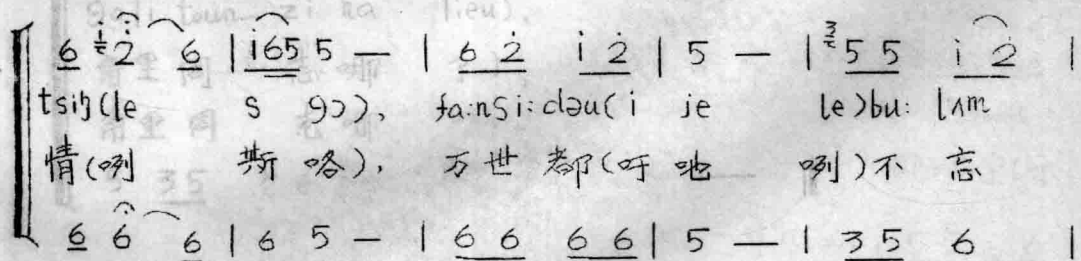 6 i 2̇ 6 | i65 5 — | 6 2̇ i 2̇ | 5 — | 3 5 5 i 2̇ |
tsiŋ(le s gɔ), fa:nsi:dəu(i je le)bu: lʌm
情(咧 斯 咯), 万世都(吁地 咧)不 忘
6 6 6 | 6 5 — | 6 6 6 6 | 5 — | 3 5 6 |